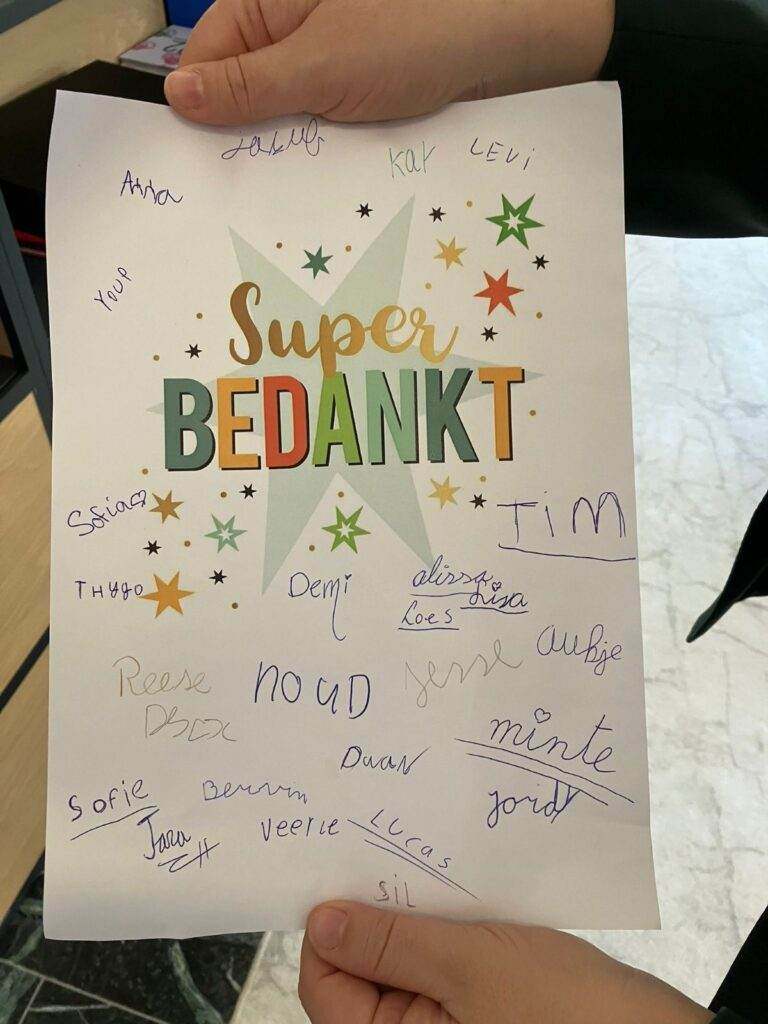 Jakub
Kat
LEVi
Anna
Youp
Super
BEDANKT
Sofia
TiM
THYGO
Demi
alissa
Lisa
Loes
Aukje
Reese
NOUD
Jesse
minte
Daan
Sofie
Berivin
Jordy
Jara
Veerle
LUCas
SiL